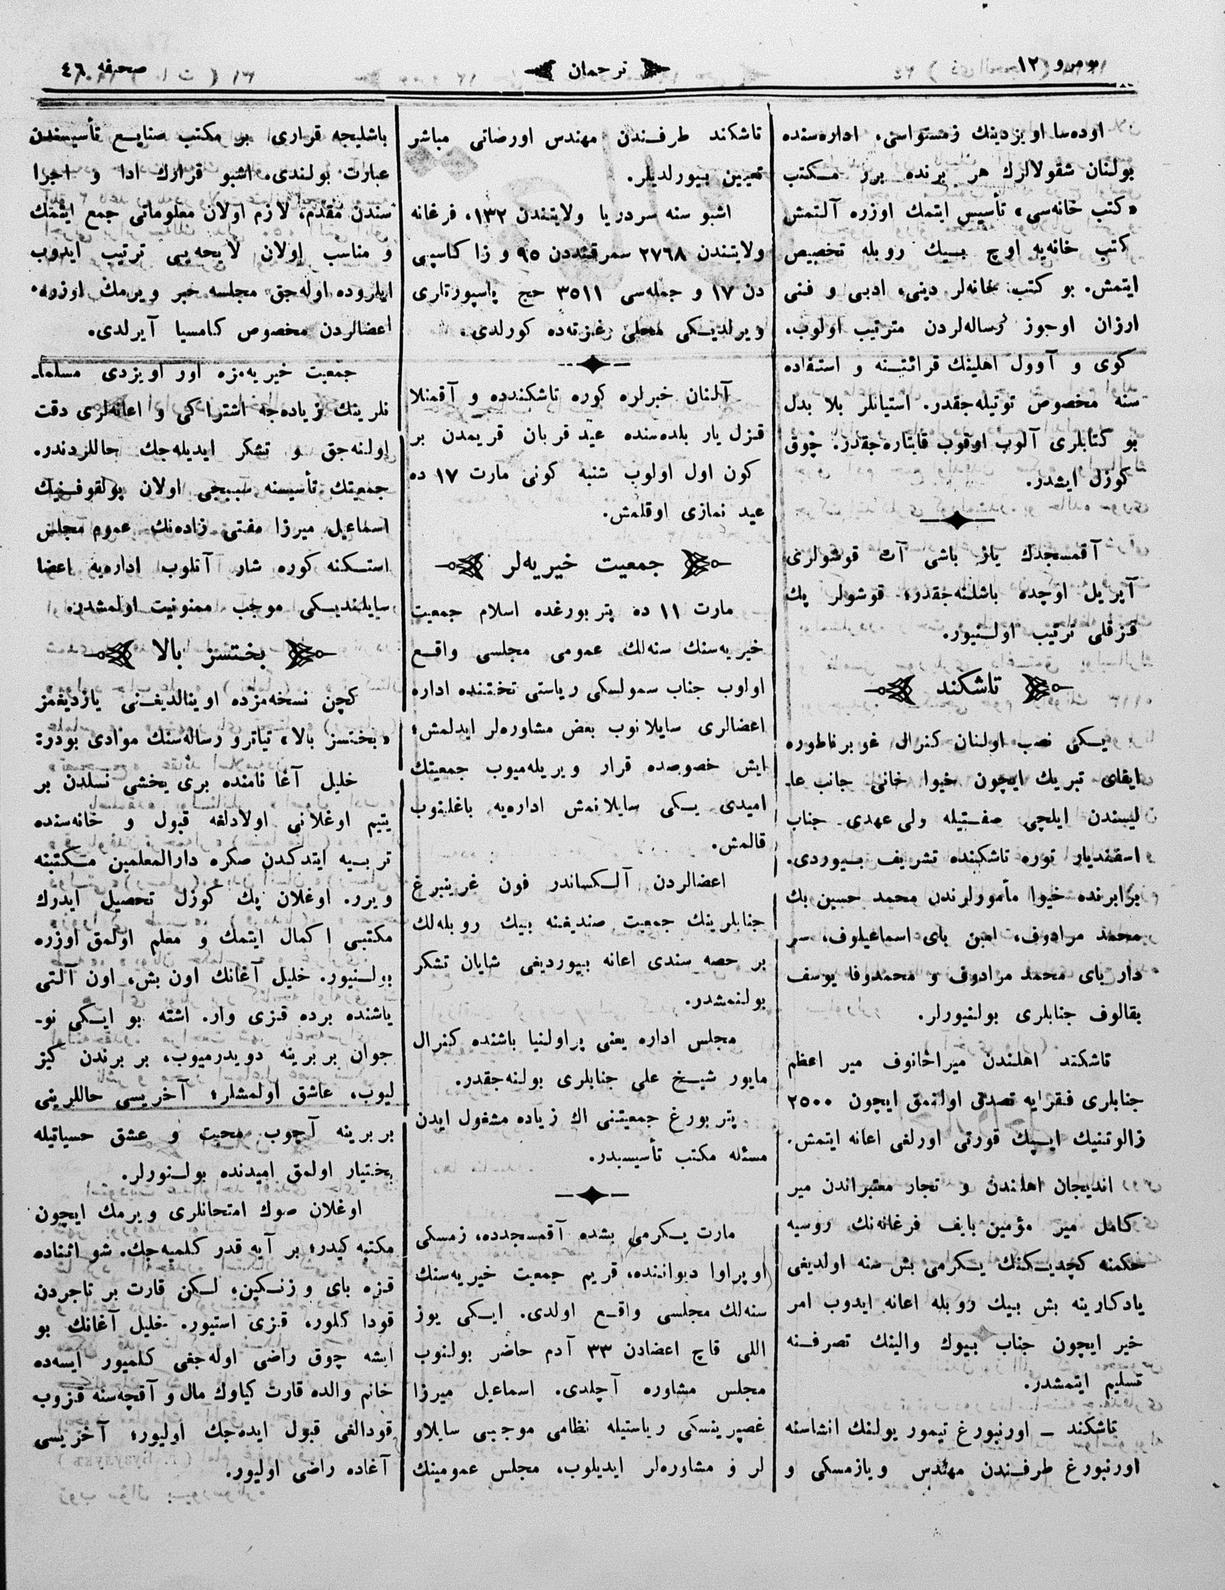 نومرو ١٢
ترجمان
صحیفه ٤٦
اوده‌سا اویزدینك زمستواسی، اداره‌سنده
بولنان شقولالرك هر برنده برر مكتب
«كتب خانه‌سی» تأسیس ایتمك اوزره آلتمش
كتب خانه‌یه اوچ بیك روبله تخصیص
ایتمش. بو كتب خانه‌لر دینی، ادبی و فنی
ارزان اوجوز رساله‌لردن مترتب اولوب،
كوی و آوول اهلینك قرائتنه و استفاده
سنه مخصوص توتیله‌جقدر. استیانلر بلا بدل
بو كتابلری آلوب اوقوب قایتاره‌جقدر. چوق
كوزل ایشدر.
آقمسجدك یاز باشی آت قوشولری
آپریل اوچده باشلنه‌جقدر؛ قوشولر پك
قزقلی ترتیب اولنیور.
تاشكند
یكی نصب اولنان كنرال غوبرناطوره
ایفای تبریك ایچون خیوا خانی جانب عا‌ـ
لیسندن ایلچی صفتیله ولی عهدی جناب
اسفندیار توره تاشكنده تشریف بیوردی.
برابرنده خیوا مأمورلرندن محمد حسین بك
محمد مرادوف، امین بای اسماعیلوف، سر
دار بای محمد مرادوف و محمدوفا یوسف
بقالوف جنابلری بولنیورلر.
تاشكند اهلندن میراخانوف میر اعظم
جنابلری فقرایه تصدق اولنمق ایچون ٢٥٠٠
زالوتنیك ایپك قورتی اورلغی اعانه ایتمش.
اندیجان اهلندن و تجار معتبراندن میر
كامل میر مؤمین بایف فرغانه‌نك روسیه
حكمنه كچدیكنك یكرمی بش سنه اولدیغی
یادكارینه بش بیك روبله اعانه ایدوب امر
خیر ایچون جناب بیوك والینك تصرفنه
تسلیم ایتمشدر.
تاشكند ــ اورنبورغ تیمور یولنك انشاسنه
اورنبورغ طرفندن مهندس ویازمسكی و
تاشكند طرفندن مهندس اورصاتی مباشر
تعیین بیورلدیلر.
اشبو سنه سردریا ولایتندن ١٣٢، فرغانه
ولایتندن ٢٧٦٨ سمرقنددن ٩٥ و زا كاسپی
دن ١٧ و جمله‌سی ٣٥١١ حج پاسپورتلری
ویرلدیكی محلی غزته‌ده كورلدی.
آلنان خبرلره كوره تاشكندده و آقمنلا
قزل یار بلده‌سنده عید قربان قریمدن بر
كون اول اولوب شنبه كونی مارت ١٧ ده
عید نمازی اوقلمش.
جمعیت خیریه‌لر
مارت ١١ ده پتربورغده اسلام جمعیت
خیریه‌سنك سنه‌لك عمومی مجلسی واقع
اولوب جناب سمولسكی ریاستی تختنده اداره
اعضالری سایلانوب بعض مشاوره‌لر ایدلمش؛
ایش خصوصده قرار ویریله‌میوب جمعیتك
امیدی یكی سایلانمش اداره‌یه باغلنوب
قالمش.
اعضالردن آلكساندر فون غرینبرغ
جنابلرینك جمعیت صندیغنه بیك روبله‌لك
بر حصه سندی اعانه بیوردیغی شایان تشكر
بولنمشدر.
مجلس اداره یعنی پراولنیا باشنده كنرال
مایور شیخ علی جنابلری بولنه‌جقدر.
پتربورغ جمعیتنی اك زیاده مشغول ایدن
مسئله مكتب تأسیسیدر.
مارت یكرمی بشده آقمسجدده، زمسكی
اوپراوا دیواننده، قریم جمعیت خیریه‌سنك
سنه‌لك مجلسی واقع اولدی. ایكی یوز
اللی قاچ اعضادن ٣٣ آدم حاضر بولنوب
مجلس مشاوره آچلدی. اسماعیل میرزا
غصپرینسكی ریاستیله نظامی موجبی سایلاو
لر و مشاوره‌لر ایدیلوب، مجلس عمومینك
باشلیجه قراری بر مكتب صنایع تأسیسندن
عبارت بولندی. اشبو قرارك ادا و اجرا
سندن مقدم، لازم اولان معلوماتی جمع ایتمك
و مناسب اولان لایحه‌یی ترتیب ایدوب
ایلروده اوله‌جق مجلسه خبر ویرمك اوزره
اعضالردن مخصوص كامسیا آیرلدی.
جمعیت خیریه‌مزه اور اویزدی مسلماـ
نلرینك زیاده‌جه اشتراكی و اعانه‌لری دقت
اولنه‌جق و تشكر ایدیله‌جك حاللردندر.
جمعیتك تأسیسنه سببجی اولان پولقوفنیك
اسماعیل میرزا مفتی زاده‌نك عموم مجلس
استكنه كوره شار آتلوب اداره‌یه اعضا
سایلندیكی موجب ممنونیت اولمشدر.
بختسز بالا
كچن نسخه‌مزده اوینالدیغنی یازدیغمز
«بختسز بالا» تیاترو رساله‌سنك موادی بودر:
خلیل آغا نامنده بری یخشی نسلدن بر
یتیم اوغلانی اولادلغه قبول و خانه‌سنده
تربیه ایتدكدن صكره دارالمعلمین مكتبنه
ویرر. اوغلان پك كوزل تحصیل آیدرك
مكتبی اكمال ایتمك و معلم اولمق اوزره
بولنیور. خلیل آغانك اون بش، اون آلتی
یاشنده برده قزی وار. اشته بو ایكی نوـ
جوان بربرینه دویدرمیوب، بر برندن كیزـ
لیوب، عاشق اولمشلر؛ آخریسی حاللرینی
بربرینه آچوب محبت و عشق حسیاتیله
بختیار اولمق امیدنده بولنورلر.
اوغلان صوك امتحانلری ویرمك ایچون
مكتبه كیدر؛ بر آیه قدر كلمیه‌جك. شو اثناده
قزه بای و زنكین، لكن قارت بر تاجردن
قودا كلور، قزی استیور. خلیل آغانك بو
ایشه چوق راضی اوله‌جغی كلمیور ایسه‌ده
خانم والده قارت كیاوك مال و آقچه‌سنه قزوب
قودالغی قبول ایده‌جك اولیور؛ آخریسی
آغاده راضی اولیور.